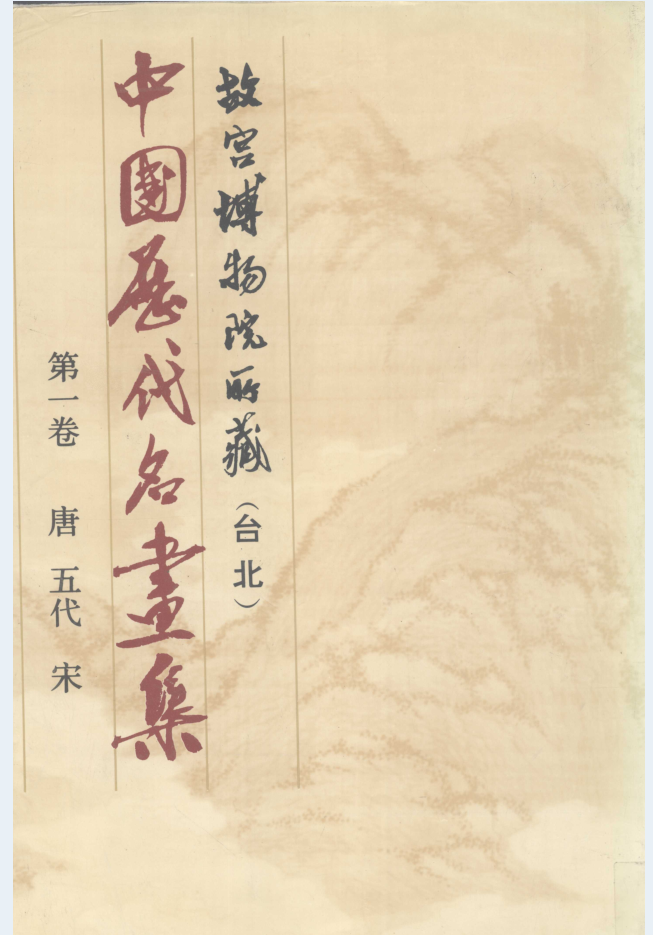 故宮博物院所藏（台北）
中國歷代名畫集
第一卷 唐 五代 宋